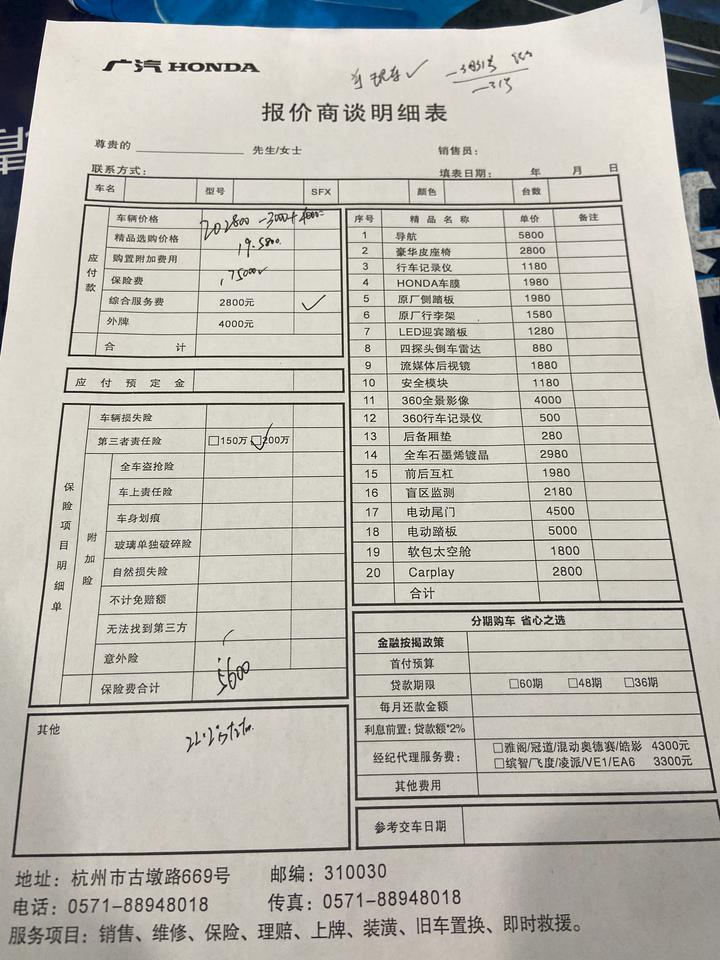 广汽 HONDA
报价商谈明细表
尊贵的 先生/女士 销售员：
联系方式： 填表日期： 年 月 日
车名 型号 SFX 颜色 台数
应付款
车辆价格 202800 -3000+
精品选购价格 19.5800.
购置附加费用
保险费
综合服务费 2800元 ✓
外牌 4000元
合 计
应付预定金
保险项目明细单
车辆损失险
第三者责任险 □150万 □200万
附加险
全车盗抢险
车上责任险
车身划痕
玻璃单独破碎险
自然损失险
不计免赔额
无法找到第三方
意外险
保险费合计 5600
其他
序号 精品名称 单价 备注
1 导航 5800
2 豪华皮座椅 2800
3 行车记录仪 1180
4 HONDA车膜 1980
5 原厂侧踏板 1980
6 原厂行李架 1580
7 LED迎宾踏板 1280
8 四探头倒车雷达 880
9 流媒体后视镜 1880
10 安全模块 1180
11 360全景影像 4000
12 360行车记录仪 500
13 后备厢垫 280
14 全车石墨烯镀晶 2980
15 前后互杠 1980
16 盲区监测 2180
17 电动尾门 4500
18 电动踏板 5000
19 软包太空舱 1800
20 Carplay 2800
合计
分期购车 省心之选
金融按揭政策
首付预算
贷款期限 □60期 □48期 □36期
每月还款金额
利息前置：贷款额*2%
经纪代理服务费： □雅阁/冠道/混动奥德赛/皓影 4300元
□缤智/飞度/凌派/VE1/EA6 3300元
其他费用
参考交车日期
地址：杭州市古墩路669号 邮编：310030
电话：0571-88948018 传真：0571-88948018
服务项目：销售、维修、保险、理赔、上牌、装潢、旧车置换、即时救援。